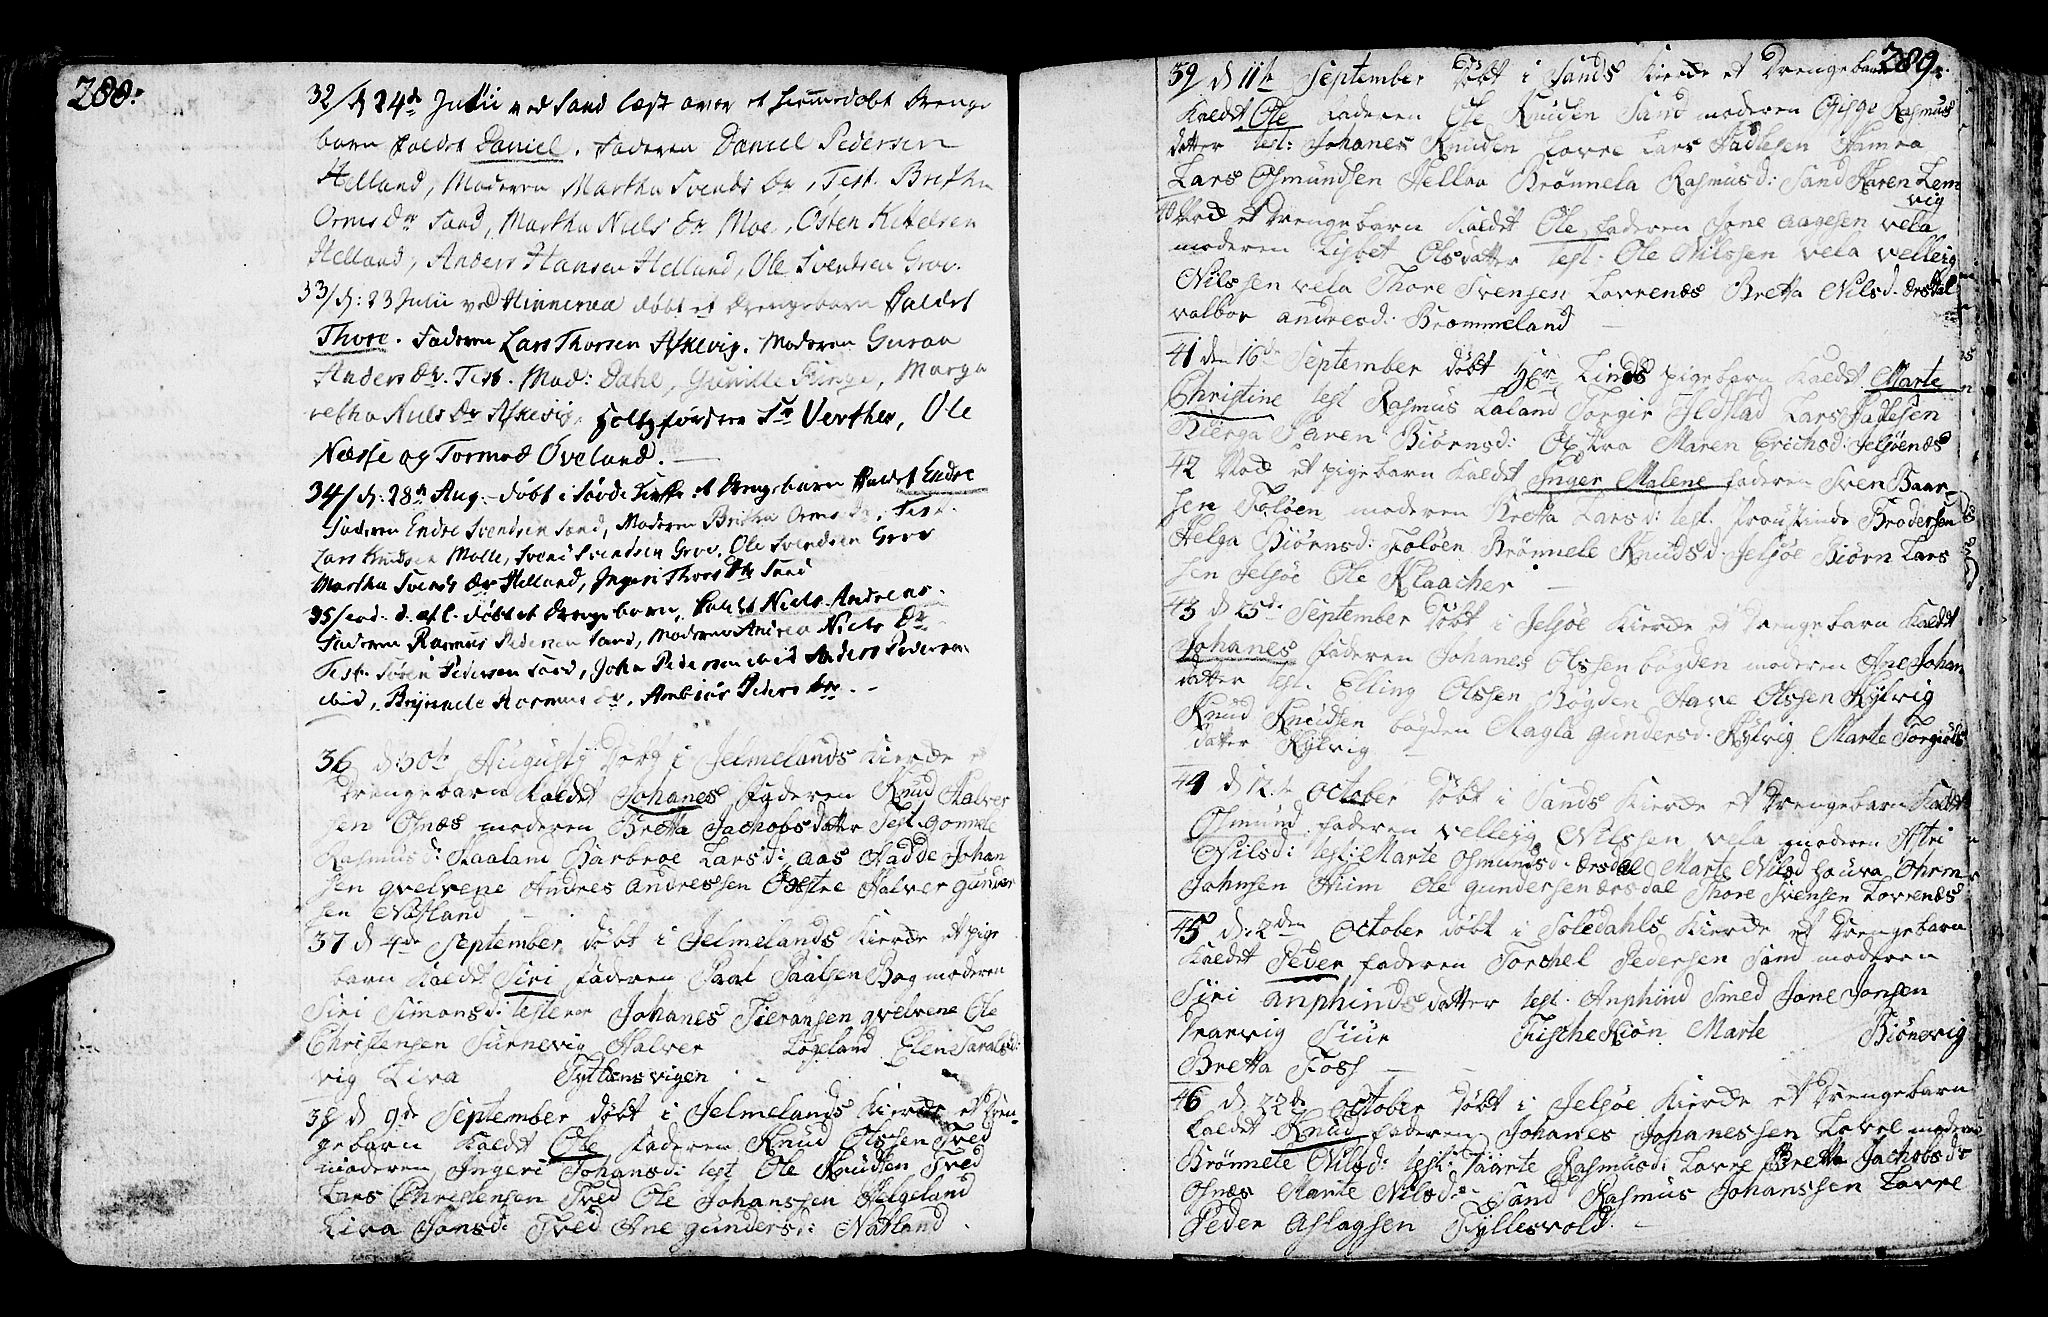 288:
32/ d 24de Julii ved Sand læst over et hiemedøbt Drenge
barn kaldet Daniel. Faderen Daniel Pedersen
Helland, Moderen Martha Svends Dr, Test. Britha
Orms Dr Sand, Martha Niels Dr Moe, Østen Ketelsen
Helland, Anders Hansen Helland, Ole Svendsen Grov.
33/ d: 23 Julii ved Hinneraa døbt et Drengebarn kaldet
Thore. Faderen Lars Thorsen Askevig. Moderen Guroa
Anders Dr. Test. Mad: Dahl, Gunille Funge, Marga
retha Niels Dr Askevig, Holtzførster Sr Verther, Ole
Næsse og Tormod Øveland.
34/ d: 28de Aug. døbt i Søvde Kirke et Drengebarn kaldet Endre
Faderen Endre Svendsen Sand, Moderen Britha Orms Dr, Test.
Lars Knudsen Molle, Svend Svendsen Grov, Ole Svendsen Grov
Martha Svends Dr Helland, Ingeri Thors Dr Sand
35/ eod. d. et l. døbt et Drengebarn, kaldet Niels Andreas.
Faderen Rasmus Pedersen Sand, Moderen Andrea Niels Dr
Test. Søren Pedersen Sand, John Pedersen ibid Anders Pedersen
ibid, Brynnele Rasmus Dr, Ambiør Peders Dr.
36 d: 30te Augusty Døbt i Jelmelands Kierche et
Drengebarn Kaldet Johanes Faderen Knud Halver
sen Osnæs moderen Bretta Jachobsdatter Test. Gonnele
Rasmusd: Haaland Barbroe Larsd: Aas Hadde Johan
sen qvelvene Andres Andressen Østre Halver Gunder
sen Nåtland
37 d 4de September døbt i Jelmelands Kierche et pige
barn Kaldet Siri Faderen Paal Paalsen Bag moderen
Siri Simonsd: testerer Johanes Tieransen qvelvene Ole
Christensen Surnevig Halver Løgeland Elen Taralsd:
vig Liva Tyttensvigen
38 d 9de September døbt i Jelmelands Kierche et Dren-
gebarn Kaldet Ole Faderen Knud Olssen Tved
moderen Ingeri Johansd: test Ole Knudsen Tved
Lars Christensen Tved Ole Johanssen Helgeland
Liva Jonsd: Tved Ane Gundersd: Nåtland
289.
39 d 11te September Døbt i Sands Kierche et Drengebarn
Kaldet Ole Faderen Ole Knudsen Sand moderen Gisge Rasmus
datter test: Johanes Knudsen Lovre Lars Hadlesen Hamra
Lars Osmundsen Hellaa Brønnela Rasmusd: Sand Karen Lem
vig
40 Nod et Drengebarn Kaldet Ole Faderen Jone Aagesen Vela
moderen Lisbet Olsdatter test: Ole Nilssen Vela Velleig
Nilssen Vela Thore Svensen Lovrenæs Bretta Nilsd. Ørsdal
Valbor Andresd: Brommeland
41 den 16de September døbt Hr Linds pigebarn Kaldet Marte
Christine test Rasmus Laland Torgir Ildstad Lars Hadlesen
Kierga Karen Biørnsd: Maren Erichsd: Jelsøenæs
42 Nod et pigebarn Kaldet Inger Malene Faderen Sven Baar-
sen Foløen moderen Bretta Larsd: test. Proustinde Brodersen
Helga Biørnsd: Foløen Brønnele Knudsd. Jelsøe Biørn Lars
sen Jelsøe Ole Klaacher
43 d 25de September Døbt i Jelsøe Kierche et Drengebarn Kaldet
Johanes Faderen Johanes Olssen bøgden moderen Ane Johan
datter test. Elling Olssen Bøgden Aave Olssen Kylvig
Knud Knudsen bøgden Magla Gundersd. Kylvig Marte Torgiuls
datter Kylvig
44 d 12te October Døbt i Sands Kierche et Drengebarn Kaldet
Osmund Faderen Velleiig Nilssen Vela moderen Atri
Nilsd: test: Marte Osmundsd. Ørsdal Marte Nilsd Houra Ohrm
Johnsen Hiim Ole Gundersen Ørsdal Thore Svensen Lovrenæs
45 d: 2den October døbt i Soledahls Kierche et Drengebarn
Kaldet Peder Faderen Torchel Pedersen Sand moderen
Siri Anphindsdatter test. Anphind Smed Jone Jonsen
Prarvig Siur FischeKiøn Marte Biønevig
Bretta Foss
46 d 22de October Døbt i Jelsøe Kierche et Drengebarn
Kaldet Knud Faderen Johanes Johanessen Lovre moderen
Brønnele Nilsd: test: Taarte Rasmusd: Lovre Bretta Jachobsdr
Osnæs Marite Nilsd: Sand Rasmus Johanssen Lovre
Peder Aslagsen Fyllesvold.